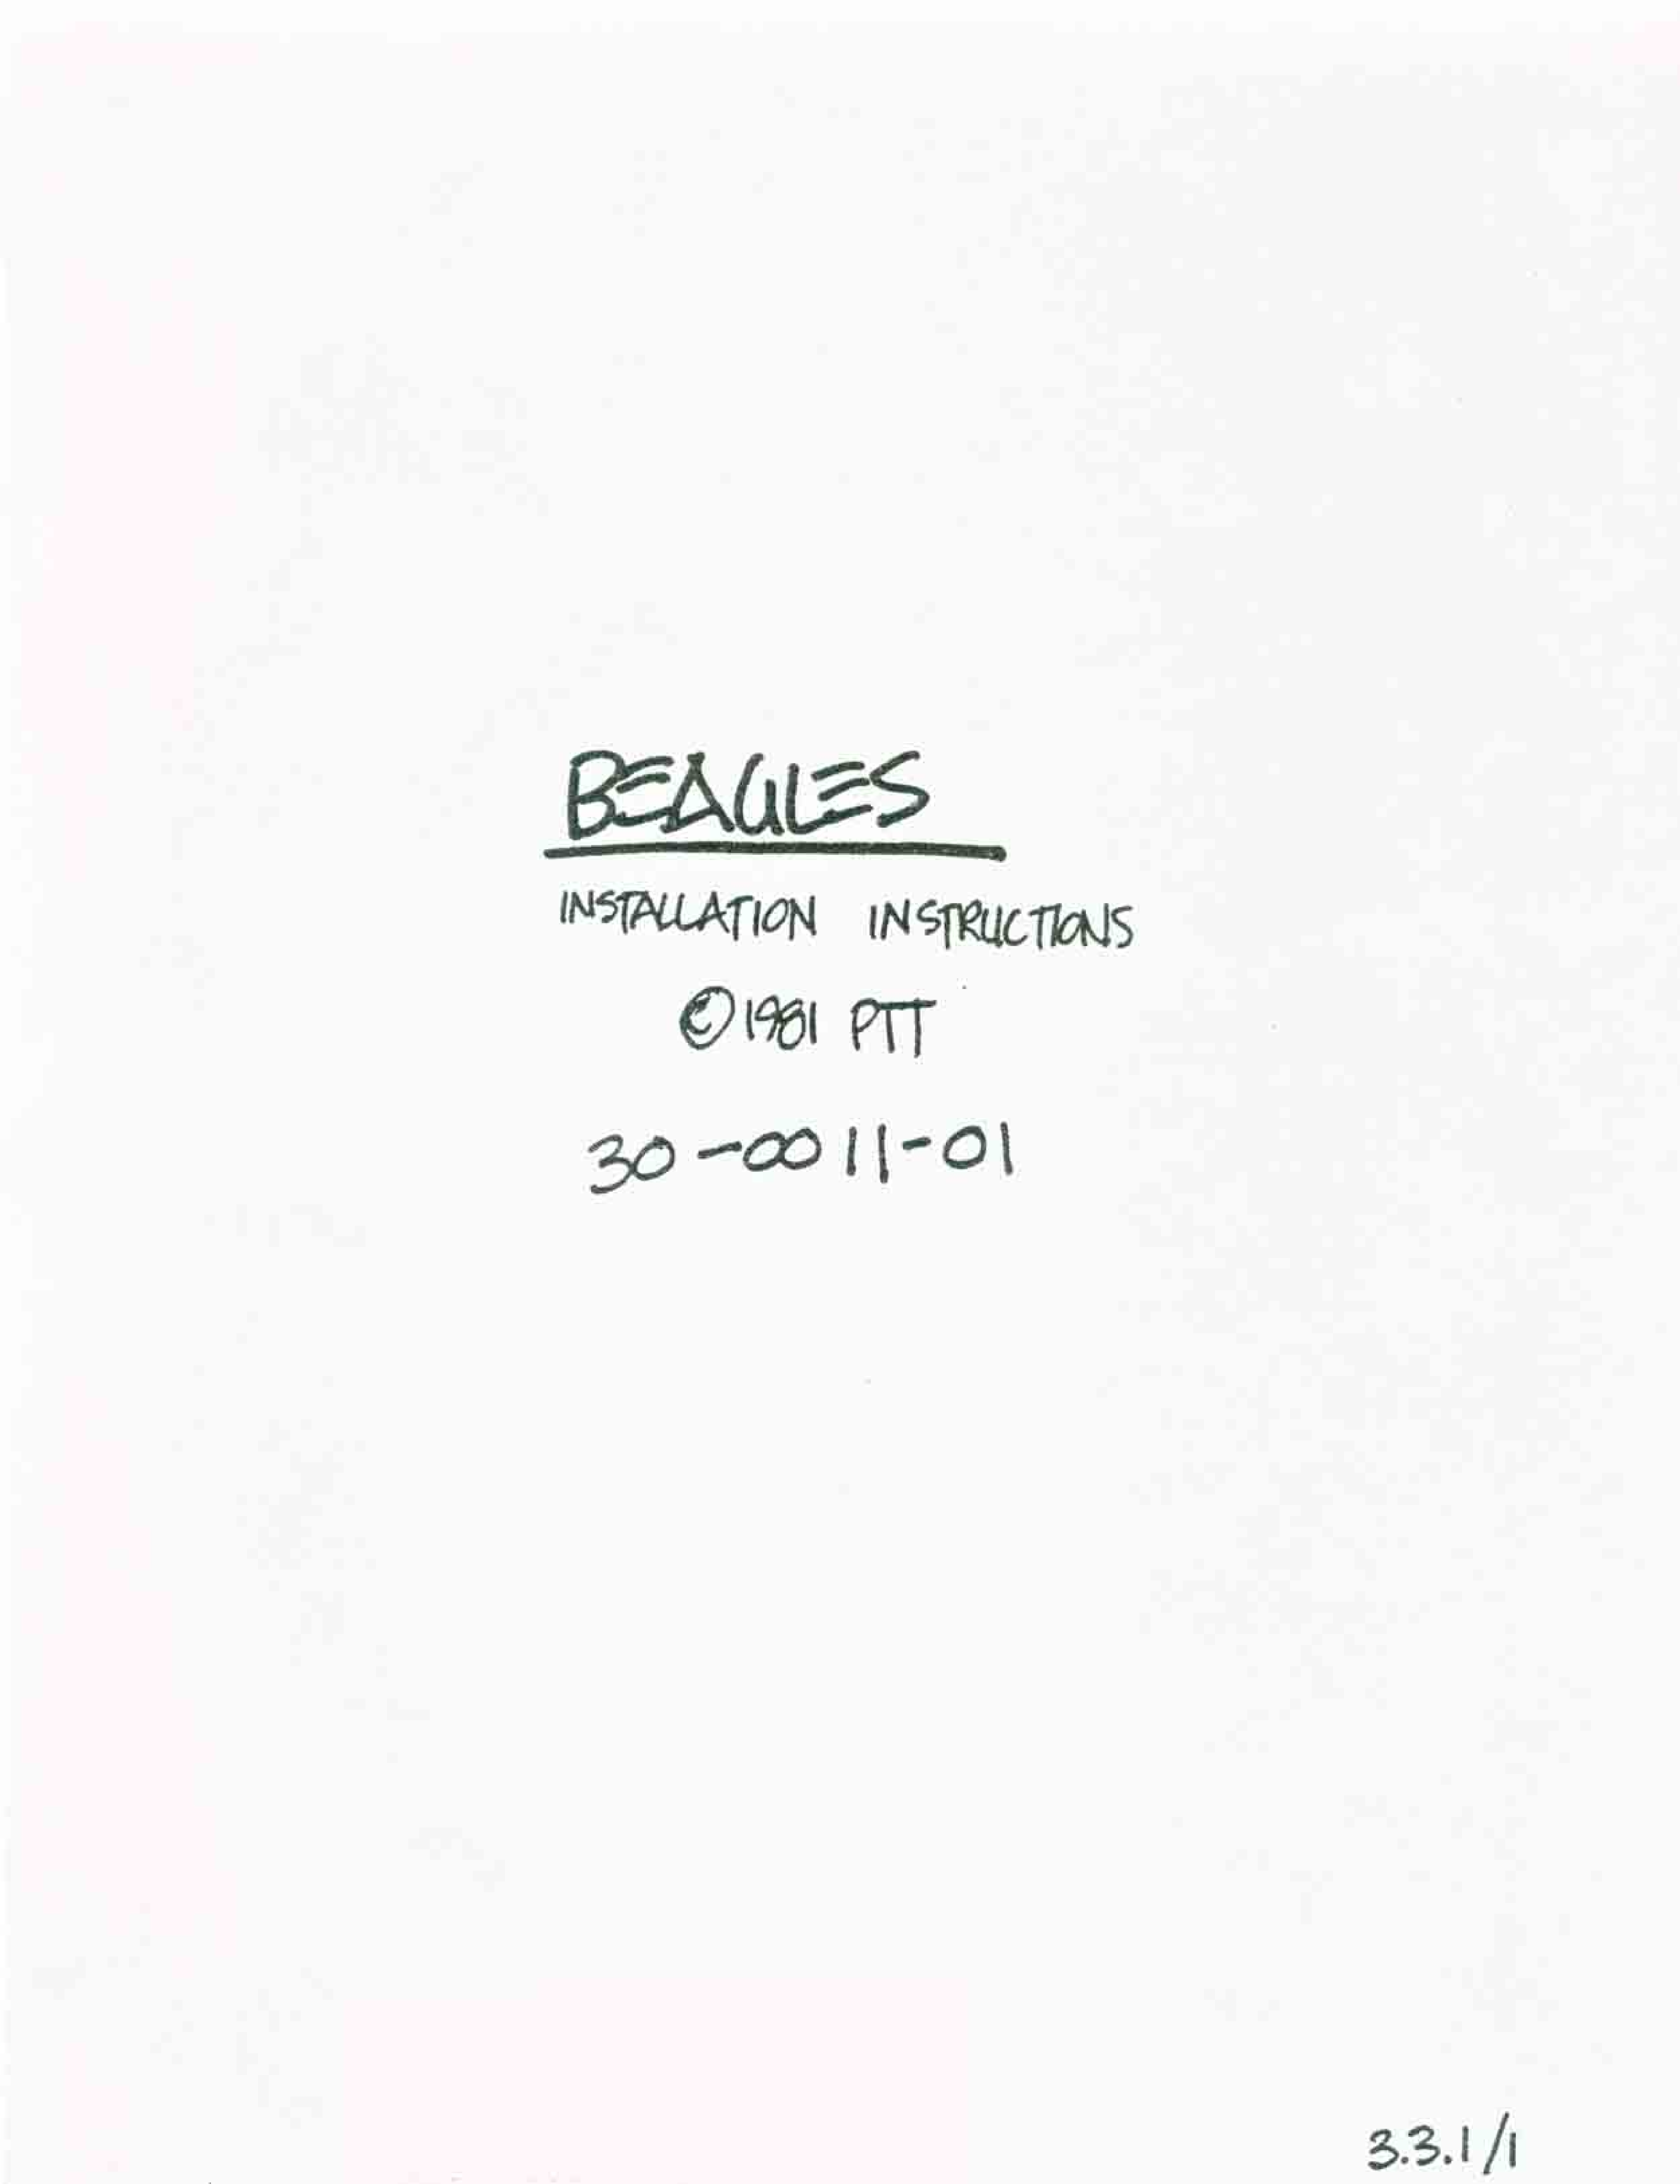 BEAGLES
INSTALLATION INSTRUCTIONS
©1981 PTT
30-0011-01
3.3.1/1